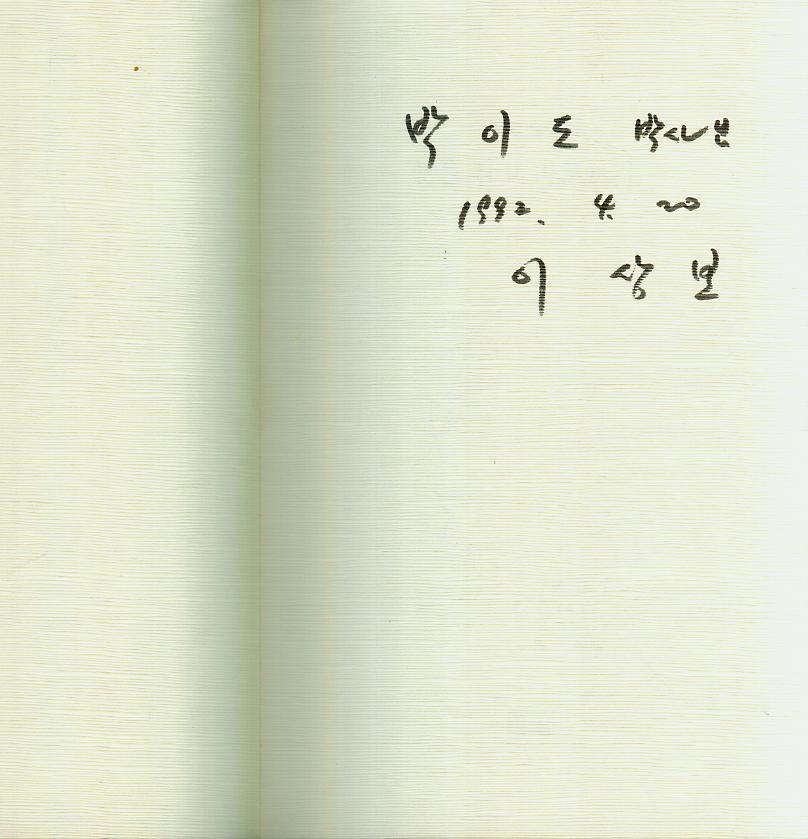 박 이 도 박사님
1992. 4. 20
이 상 보